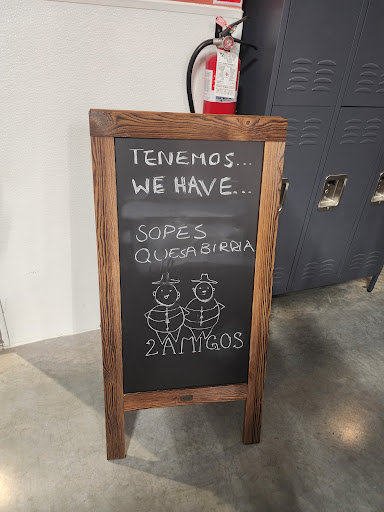 TENEMOS...
WE HAVE...
SOPES
QUESABIRRIA
2 AMIGOS